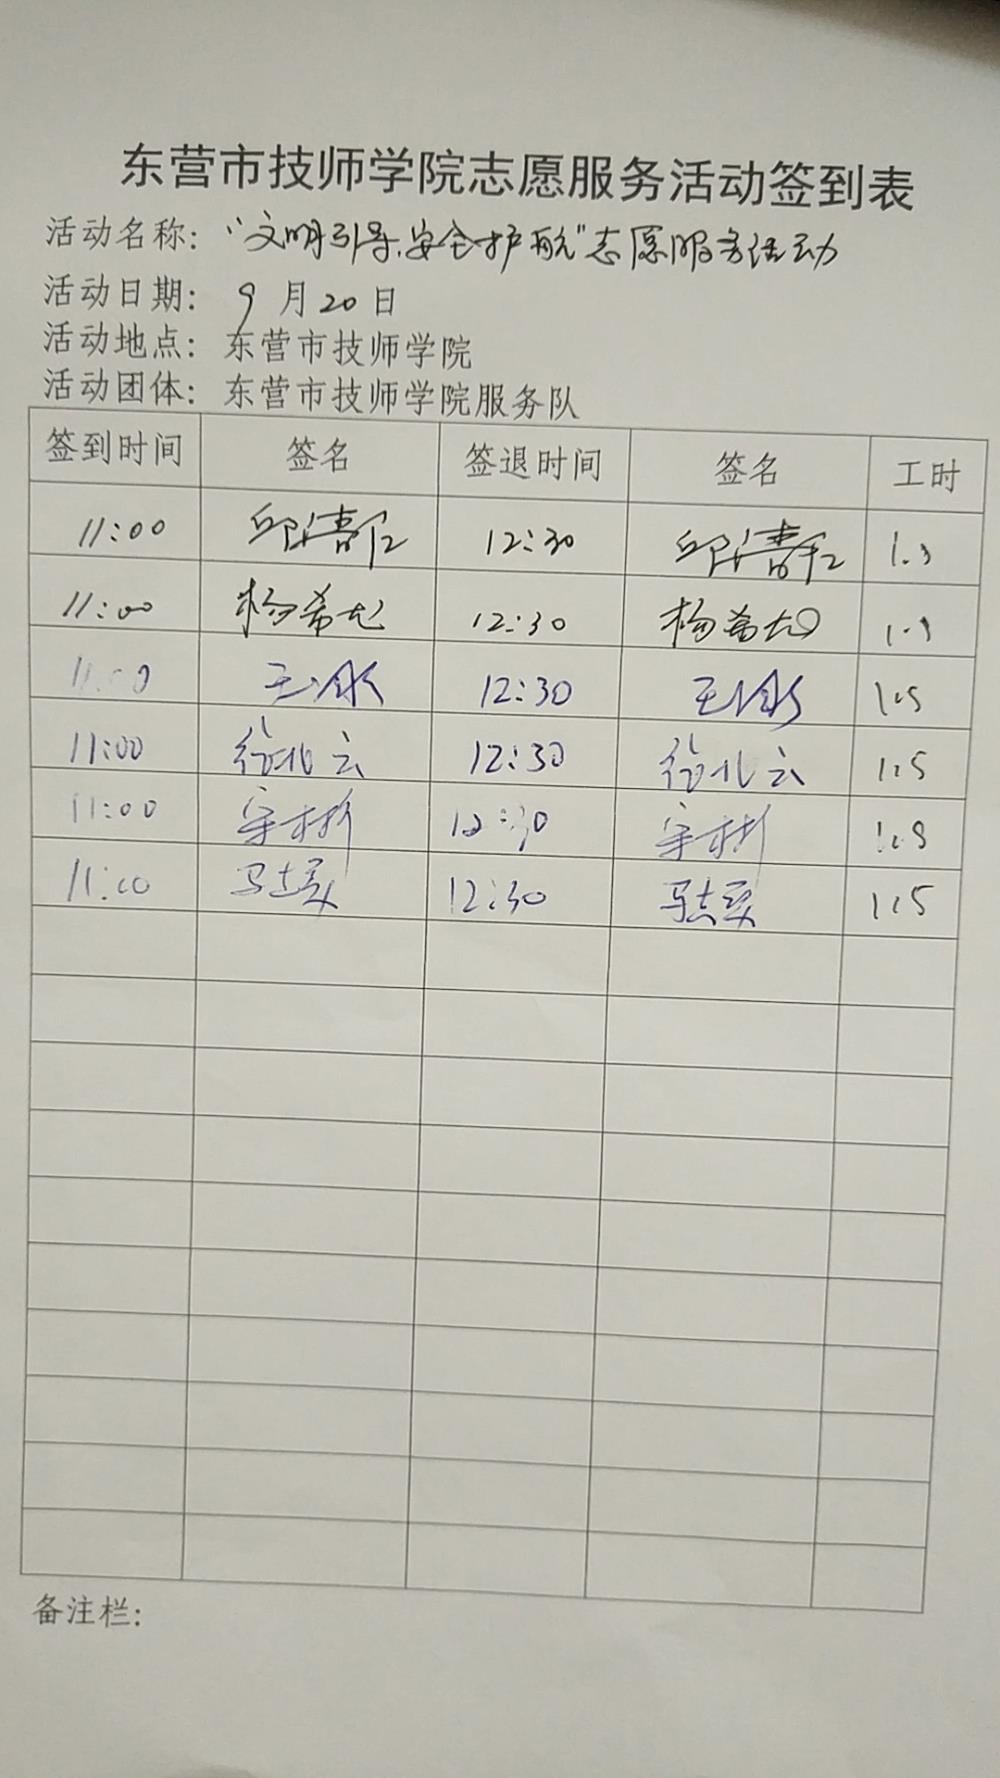 东营市技师学院志愿服务活动签到表
活动名称：“文明引导、安全护航”志愿服务活动
活动日期： 9 月 20 日
活动地点：东营市技师学院
活动团体：东营市技师学院服务队
签到时间 签名 签退时间 签名 工时
11:00 12:30
11:00 杨希龙 12:30 杨希龙
王冰 12:30 王冰 1.5
11:00 徐兆云 12:30 徐兆云 1.5
11:00 宋彬 12:30 宋彬 1.5
11:00 马志昊 12:30 马志昊 1.5
备注栏：